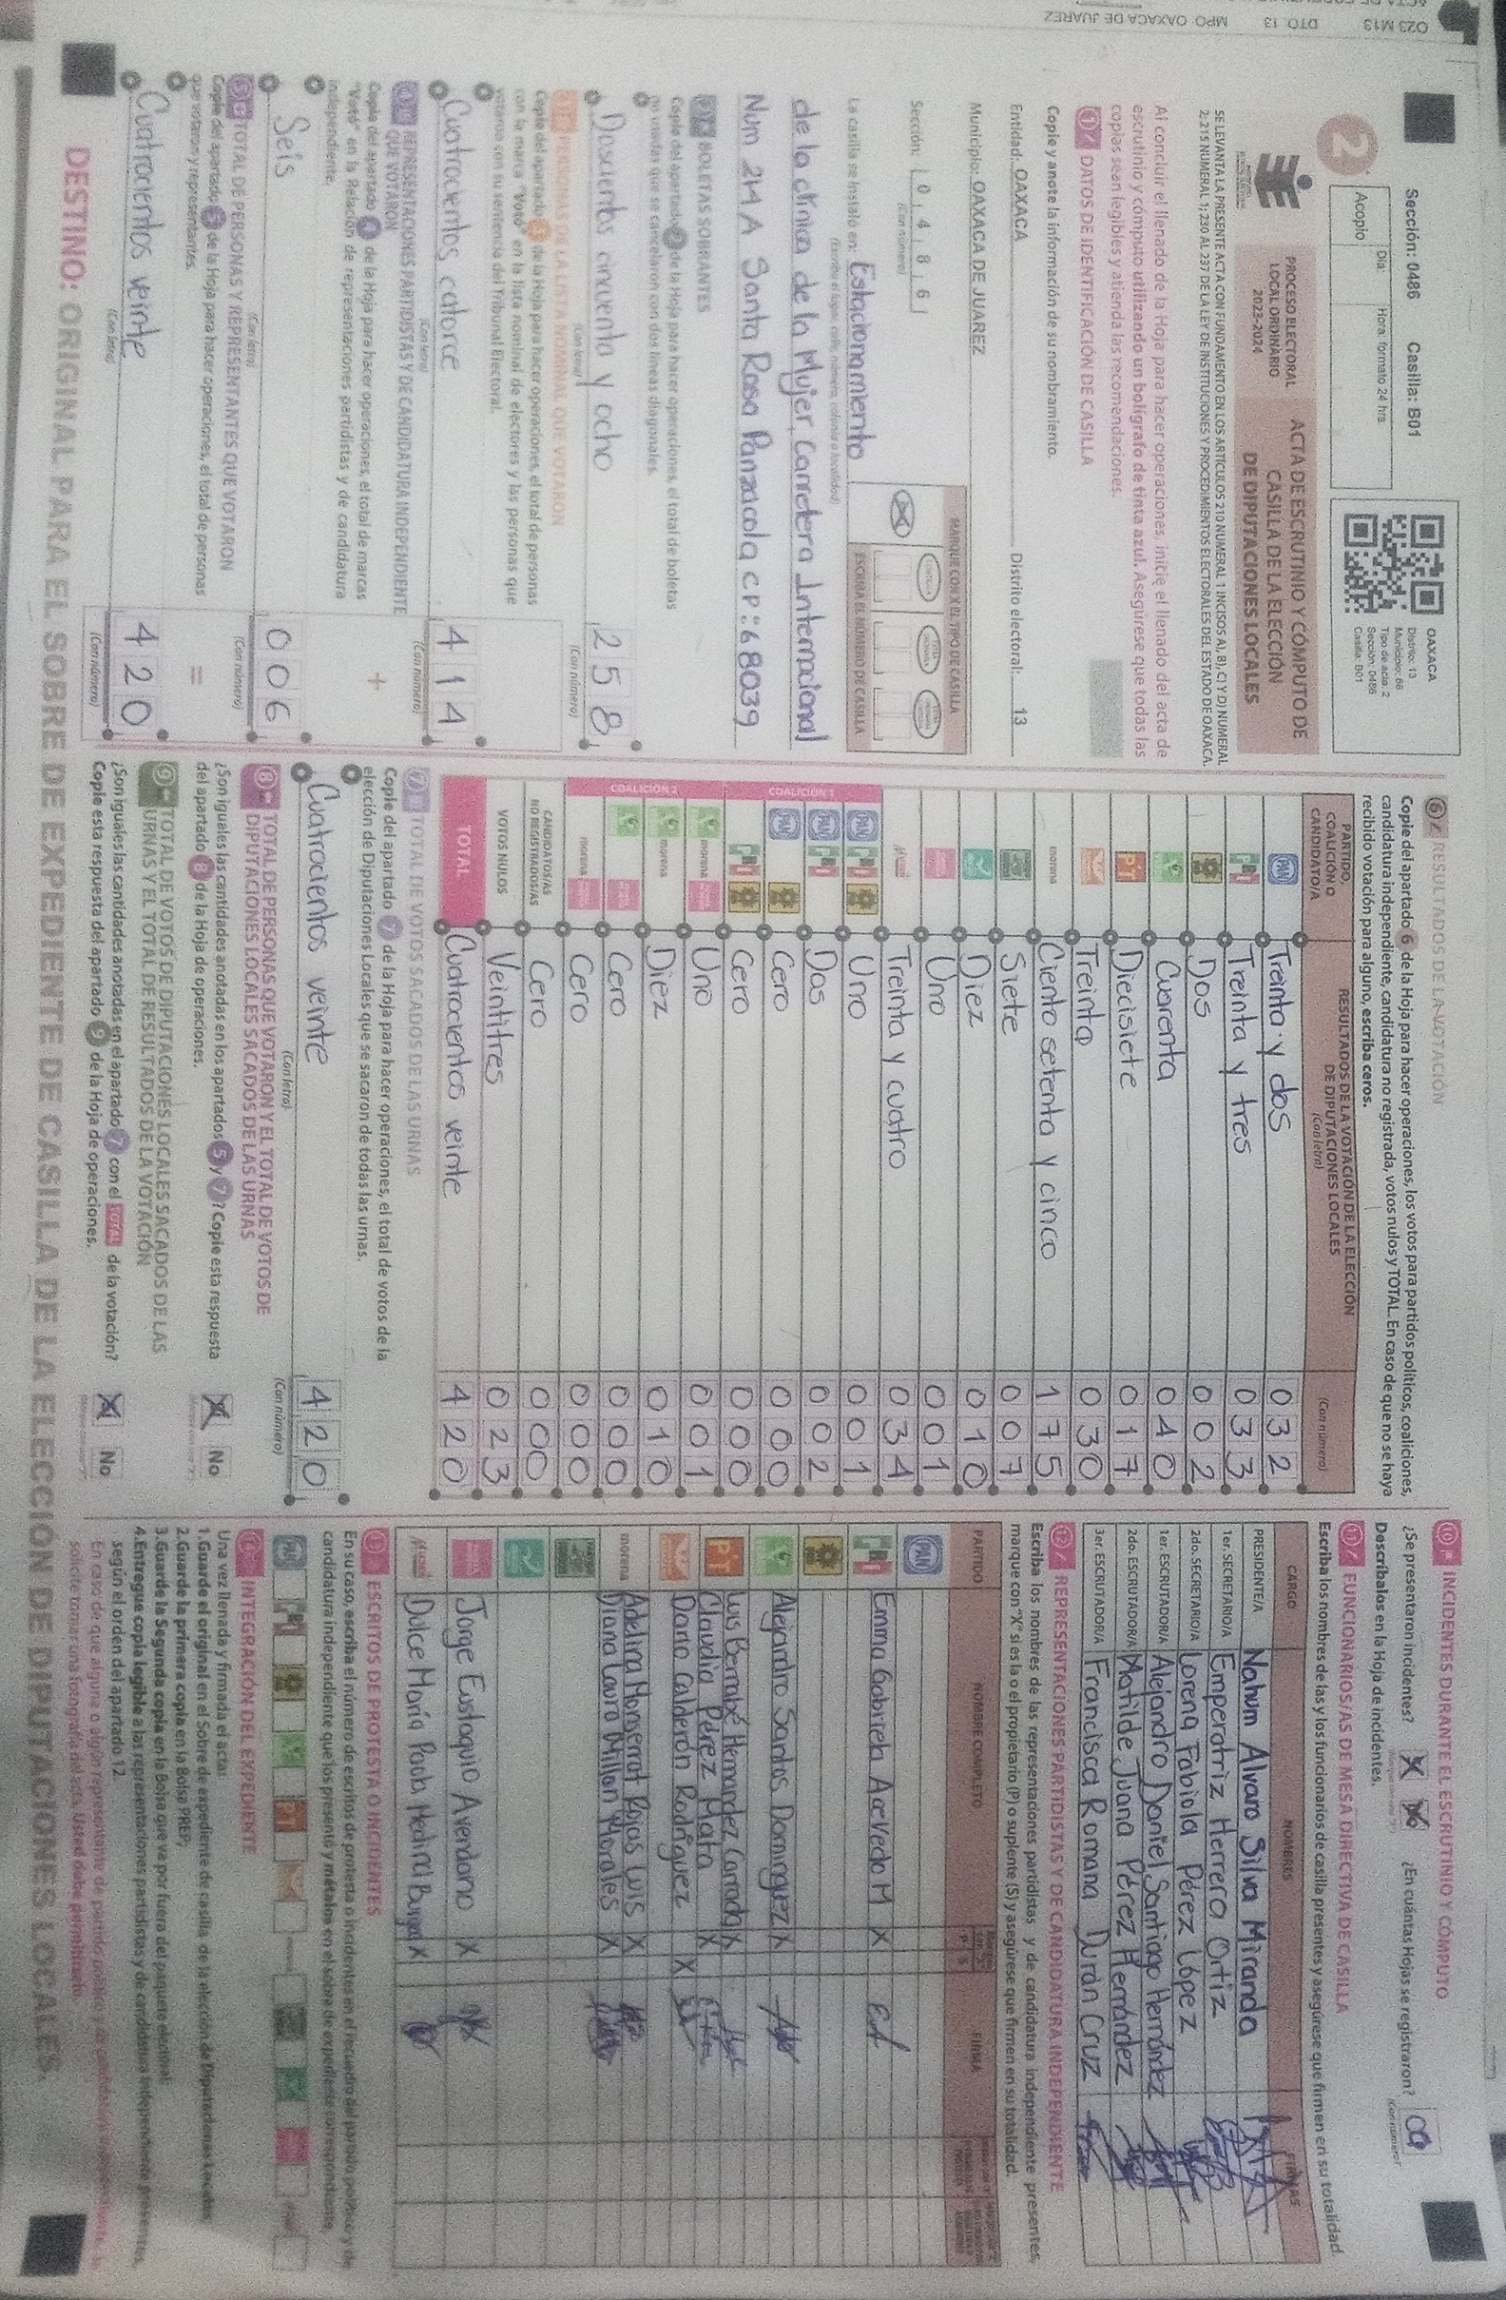 O23 M13 DTO. 13 MPO. OAXACA DE JUAREZ
Sección: 0486 Casilla: B01
Día: Hora: formato 24 hrs
Acopio
OAXACA
Distrito: 13
Municipio: 66
Tipo de acta: 2
Sección: 0486
Casilla: B01
2
PROCESO ELECTORAL
LOCAL ORDINARIO
2023-2024
ACTA DE ESCRUTINIO Y CÓMPUTO DE
CASILLA DE LA ELECCIÓN
DE DIPUTACIONES LOCALES
SE LEVANTA LA PRESENTE ACTA CON FUNDAMENTO EN LOS ARTÍCULOS 210 NUMERAL 1 INCISOS A), B), C) Y D) NUMERAL
2; 215 NUMERAL 1; 230 AL 237 DE LA LEY DE INSTITUCIONES Y PROCEDIMIENTOS ELECTORALES DEL ESTADO DE OAXACA.
Al concluir el llenado de la Hoja para hacer operaciones, inicie el llenado del acta de
escrutinio y cómputo utilizando un bolígrafo de tinta azul. Asegúrese que todas las
copias sean legibles y atienda las recomendaciones.
1 DATOS DE IDENTIFICACIÓN DE CASILLA
Copie y anote la información de su nombramiento.
Entidad: OAXACA Distrito electoral: 13
Municipio: OAXACA DE JUAREZ
Sección: 0486
(Con número)
MARQUE CON X EL TIPO DE CASILLA
ESCRIBA EL NÚMERO DE CASILLA
La casilla se instaló en: Estacionamiento
(Escriba el lugar, calle, número, colonia o localidad)
de la clínica de la Mujer, Carretera Internacional
Num 214 A Santa Rosa Panzacola CP:68039
2 BOLETAS SOBRANTES
Copie del apartado 2 de la Hoja para hacer operaciones, el total de boletas
no usadas que se cancelaron con dos líneas diagonales.
Doscientos cincuenta y ocho 258
(Con letra) (Con número)
PERSONAS DE LA LISTA NOMINAL QUE VOTARON
Copie del apartado 3 de la Hoja para hacer operaciones, el total de personas
con la marca "Votó" en la lista nominal de electores y las personas que
votaron con su sentencia del Tribunal Electoral.
Cuatrocientos catorce 414
(Con letra) (Con número)
+
REPRESENTACIONES PARTIDISTAS Y DE CANDIDATURA INDEPENDIENTE
QUE VOTARON
Copie del apartado 4 de la Hoja para hacer operaciones, el total de marcas
"Votó" en la Relación de representaciones partidistas y de candidatura
independiente.
Seis 006
(Con letra) (Con número)
=
TOTAL DE PERSONAS Y REPRESENTANTES QUE VOTARON
Copie del apartado 5 de la Hoja para hacer operaciones, el total de personas
que votaron y representantes.
Cuatrocientos veinte 420
(Con letra) (Con número)
6 RESULTADOS DE LA VOTACIÓN
Copie del apartado 6 de la Hoja para hacer operaciones, los votos para partidos políticos, coaliciones,
candidatura independiente, candidatura no registrada, votos nulos y TOTAL. En caso de que no se haya
recibido votación para alguno, escriba ceros.
PARTIDO,
COALICIÓN O
CANDIDATO/A
RESULTADOS DE LA VOTACIÓN DE LA ELECCIÓN
DE DIPUTACIONES LOCALES
(Con letra) (Con número)
PAN Treinta y dos 032
PRI Treinta y tres 033
Dos 002
Cuarenta 040
PT Diecisiete 017
Treinta 030
morena Ciento setenta y cinco 175
Siete 007
Diez 010
Uno 001
Treinta y cuatro 034
COALICIÓN 1
PAN PRI Uno 001
PAN PRI Dos 002
PAN Cero 000
PRI Cero 000
COALICIÓN 2
morena Uno 001
morena Diez 010
Cero 000
morena Cero 000
CANDIDATOS/AS
NO REGISTRADOS/AS Cero 000
VOTOS NULOS Veintitres 023
TOTAL Cuatrocientos veinte 420
7 TOTAL DE VOTOS SACADOS DE LAS URNAS
Copie del apartado 7 de la Hoja para hacer operaciones, el total de votos de la
elección de Diputaciones Locales que se sacaron de todas las urnas.
Cuatrocientos veinte 420
(Con letra) (Con número)
8 TOTAL DE PERSONAS QUE VOTARON Y EL TOTAL DE VOTOS DE
DIPUTACIONES LOCALES SACADOS DE LAS URNAS
¿Son iguales las cantidades anotadas en los apartados 5 y 7? Copie esta respuesta
del apartado 8 de la Hoja de operaciones.
X No
9 TOTAL DE VOTOS DE DIPUTACIONES LOCALES SACADOS DE LAS
URNAS Y EL TOTAL DE RESULTADOS DE LA VOTACIÓN
¿Son iguales las cantidades anotadas en el apartado 7 con el TOTAL de la votación?
Copie esta respuesta del apartado 9 de la Hoja de operaciones.
X No
10 INCIDENTES DURANTE EL ESCRUTINIO Y CÓMPUTO
¿Se presentaron incidentes? ¿En cuántas Hojas se registraron?
(Con número)
Descríbalos en la Hoja de incidentes.
11 FUNCIONARIOS/AS DE MESA DIRECTIVA DE CASILLA
Escriba los nombres de las y los funcionarios de casilla presentes y asegúrese que firmen en su totalidad.
CARGO NOMBRES FIRMAS
PRESIDENTE/A Nahum Alvaro Silva Miranda
1er. SECRETARIO/A Emperatriz Herrera Ortiz
2do. SECRETARIO/A Lorena Fabiola Pérez López
1er. ESCRUTADOR/A Alejandro Daniel Santiago Hernández
2do. ESCRUTADOR/A Matilde Juana Pérez Hernández
3er. ESCRUTADOR/A Francisca Romana Durán Cruz
12 REPRESENTACIONES PARTIDISTAS Y DE CANDIDATURA INDEPENDIENTE
Escriba los nombres de las representaciones partidistas y de candidatura independiente presentes,
marque con "X" si es la o el propietario (P) o suplente (S) y asegúrese que firmen en su totalidad.
PARTIDO NOMBRE COMPLETO P S FIRMA
PAN
PRI Emma Gabriela Acevedo M X
Alejandro Santos Dominguez X
PT Luis Bernabé Hernandez X
Claudia Pérez Mata X
Dario Calderón Rodríguez X
morena Adelina Monserrat Rojas Luis X
Diana Laura Millan Morales X
Jorge Eustaquio Avendano X
Dulce María Paola Medina X
13 ESCRITOS DE PROTESTA O INCIDENTES
En su caso, escriba el número de escritos de protesta o incidentes en el recuadro del partido político y de
candidatura independiente que los presentó y métalos en el sobre de expediente correspondiente.
PAN PRI PT
INTEGRACIÓN DEL EXPEDIENTE
Una vez llenada y firmada el acta:
1.Guarde el original en el Sobre de expediente de casilla de la elección de Diputaciones Locales.
2.Guarde la primera copia en la Bolsa PREP;
3.Guarde la Segunda copia en la Bolsa que va por fuera del paquete electoral;
4.Entregue copia legible a las representaciones partidistas y de candidatura independiente presentes,
según el orden del apartado 12.
En caso de que alguna o algún representante de partido político y de candidatura independiente, le
solicite tomar una fotografía del acta, Usted debe permitírselo.
DESTINO: ORIGINAL PARA EL SOBRE DE EXPEDIENTE DE CASILLA DE LA ELECCIÓN DE DIPUTACIONES LOCALES.